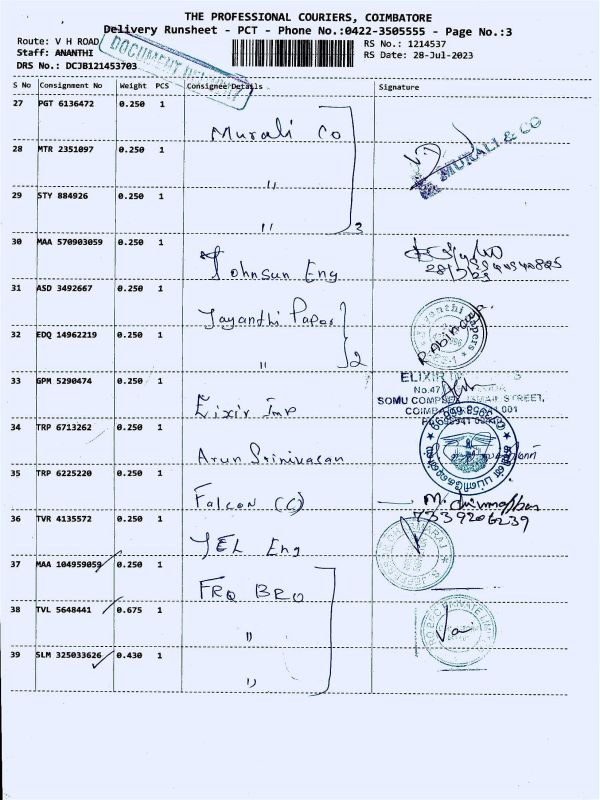 THE PROFESSIONAL COURIERS, COIMBATORE
Delivery Runsheet - PCT - Phone No.:0422-3505555 - Page No.:3
Route: V H ROAD
RS No.: 1214537
Staff: ANANTHI
RS Date: 28-Jul-2023
DRS No.: DCJB121453703
DOCUMENT
S No Consignment No Weight PCS Consignee Details Signature
27 PGT 6136472 0.250 1
Murali Co
28 MTR 2351097 0.250 1
MURALI & CO
"
29 STY 884926 0.250 1
" 3
30 MAA 570903059 0.250 1
Johnsun Eng
31 ASD 3492667 0.250 1
Jayanthi Papar
32 EDQ 14962219 0.250 1
" 2
33 GPM 5290474 0.250 1
ELIXIR
No.47
SOMU STREET,
Eixir Imp
34 TRP 6713262 0.250 1
Arun Srinivasan
35 TRP 6225220 0.250 1
Falcon (C)
7339206239
36 TVR 4135572 0.250 1
JEL Eng
37 MAA 104959059 0.250 1
FRQ BRO
38 TVL 5648441 0.675 1
"
39 SLM 325033626 0.430 1
"